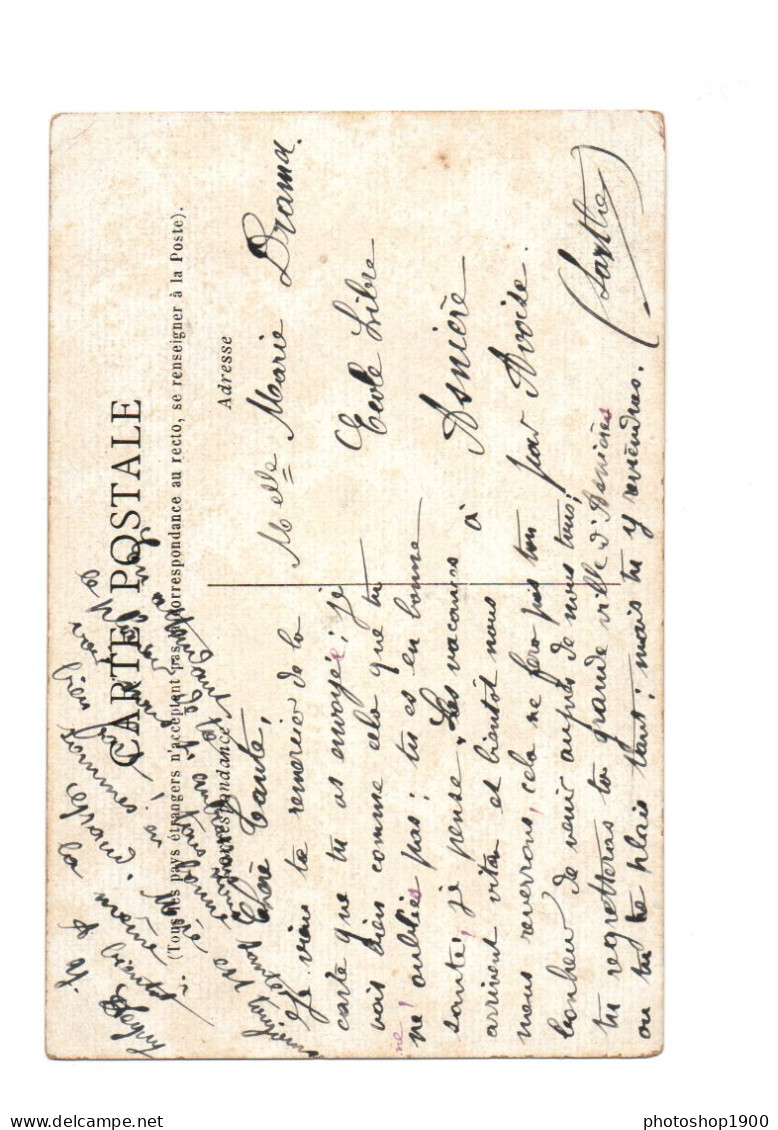 CARTE POSTALE
(Tous les pays étrangers n'acceptent pas la correspondance au recto, se renseigner à la Poste).
Correspondance
Adresse
Melle Marie Drama
Ecole Libre
Asnière
à
par Avoise.
(Sarthe)
Chère Tante,
Je viens te remercier de la
carte que tu as envoyée; je
vois bien comme cela que tu
ne m'oublies pas; tu es en bonne
santé, je pense. Les vacances
arrivent vite et bientôt nous
nous reverrons, cela ne fera pas ton
bonheur de venir auprès de nous tous;
tu regretteras ta grande ville d'Asnières
où tu te plais tant; mais tu y reviendras.
ne
Nous sommes tous en bonne santé
Grand' Mère est toujours
la même
A bientôt